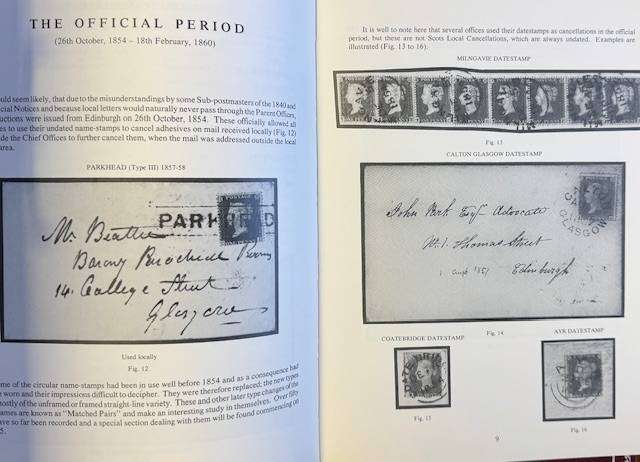 THE OFFICIAL PERIOD
(26th October, 1854 – 18th February, 1860)
ould seem likely, that due to the misunderstandings by some Sub-postmasters of the 1840 and
cial Notices and because local letters would naturally never pass through the Parent Offices,
uctions were issued from Edinburgh on 26th October, 1854. These officially allowed all
es to use their undated name-stamps to cancel adhesives on mail received locally (Fig. 12)
de the Chief Offices to further cancel them, when the mail was addressed outside the local
area.
PARKHEAD (Type III) 1857-58
PARKHEAD
Mr. Beattie
Barony Parochial
14. College Street
Glasgow
Used locally
Fig. 12
me of the circular name-stamps had been in use well before 1854 and as a consequence had
worn and their impressions difficult to decipher. They were therefore replaced; the new types
ostly of the unframed or framed straight-line variety. These and other later type changes of the
ames are known as "Matched Pairs" and make an interesting study in themselves. Over fifty
ave so far been recorded and a special section dealing with them will be found commencing on
5.
It is well to note here that several offices used their datestamps as cancellations in the official
period, but these are not Scots Local Cancellations, which are always undated. Examples are
illustrated (Fig. 13 to 16).
MILNGAVIE DATESTAMP
Fig. 13
CALTON GLASGOW DATESTAMP
GLASGOW
John Esqr Advocate
Thomas Street
Edinburgh
Fig. 14
COATEBRIDGE DATESTAMP
AYR DATESTAMP
Fig. 15
Fig. 16
9